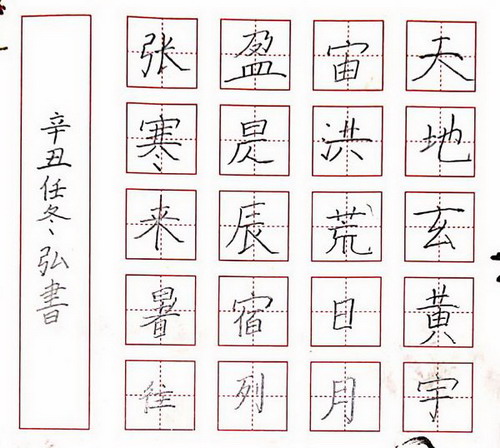 天地玄黄宇
宙洪荒日月
盈昃辰宿列
张寒来暑往
辛丑任冬、弘書